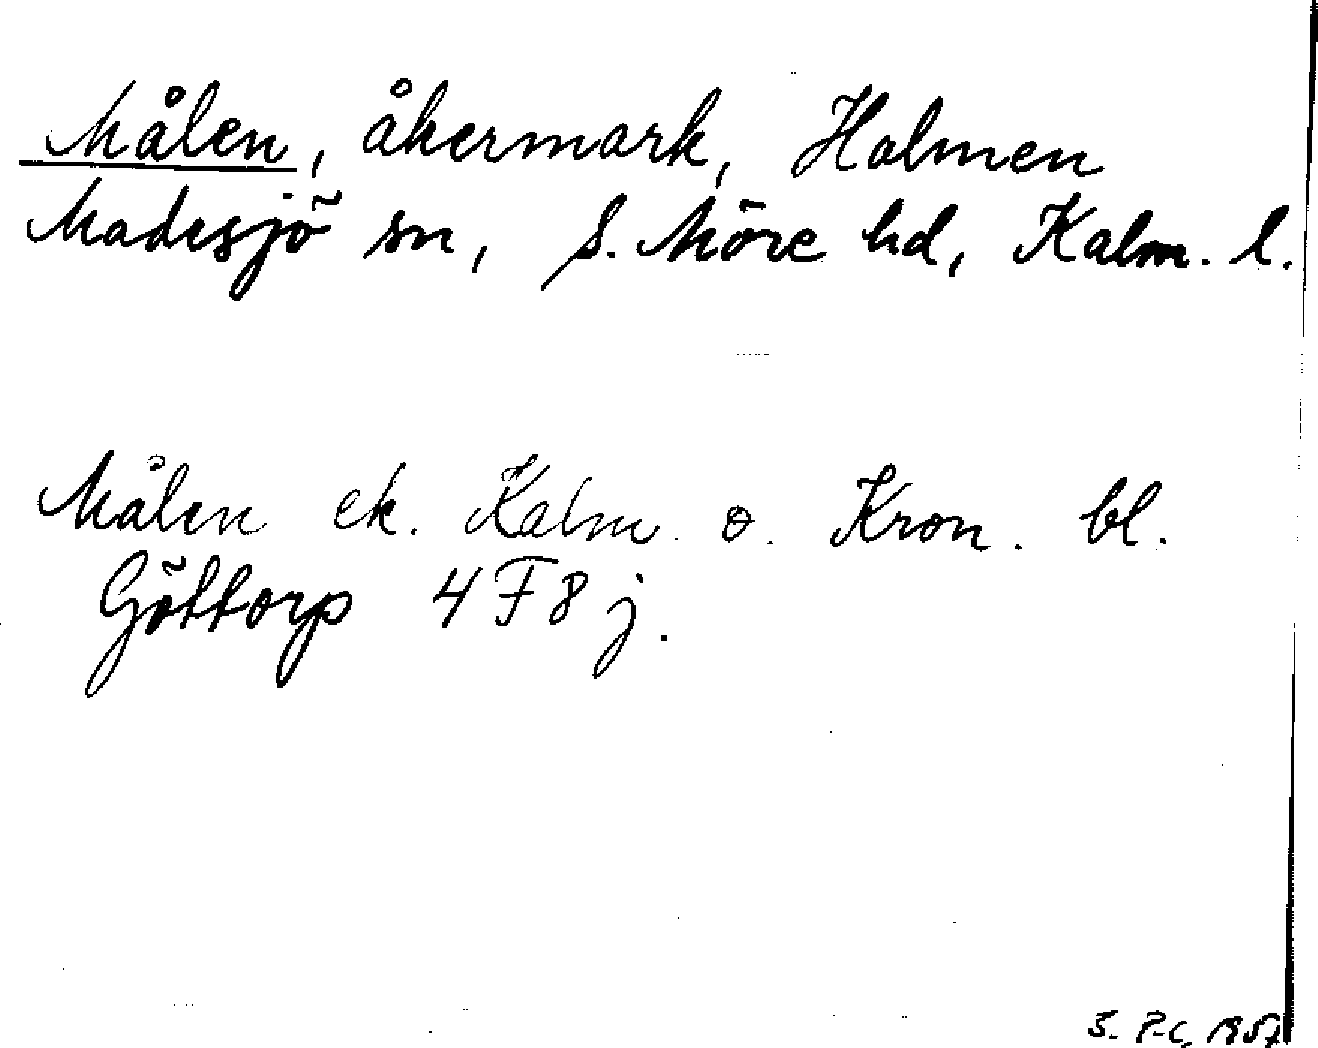 Målen, åkermark, Holmen
Madesjö sn, S. Möre hd, Kalm. l.
Målen ek. Kalm. o. Kron. bl.
Göttorp 4F8j.
S. P-C, 1957